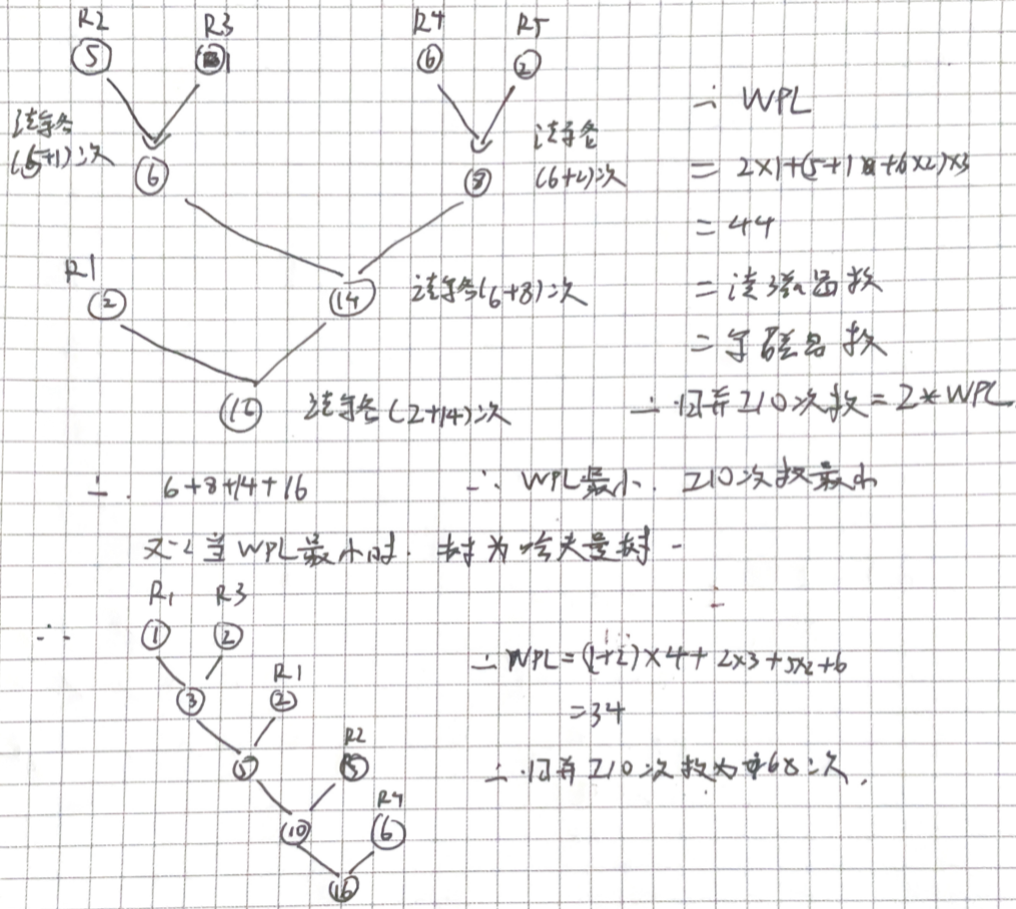 R2 R3 R4 R5
5 1 6 2
读写各
(5+1)次
6
读写各
(6+2)次
8
R1
2
14
读写各(6+8)次
16
读写各(2+14)次
∴ WPL
= 2×1+(5+1+6+2)×3
= 44
= 读磁盘次数
= 写磁盘次数
∴ 归并I/O次数=2*WPL
∴ 6+8+14+16
∴ WPL最小. I/O次数最小
又∵当WPL最小时. 树为哈夫曼树.
∴
R1 R3
1 2
3
R1
2
5
R2
5
10
R4
6
16
∴ WPL=(1+2)×4+2×3+5×2+6
=34
∴ 归并I/O次数为68次.